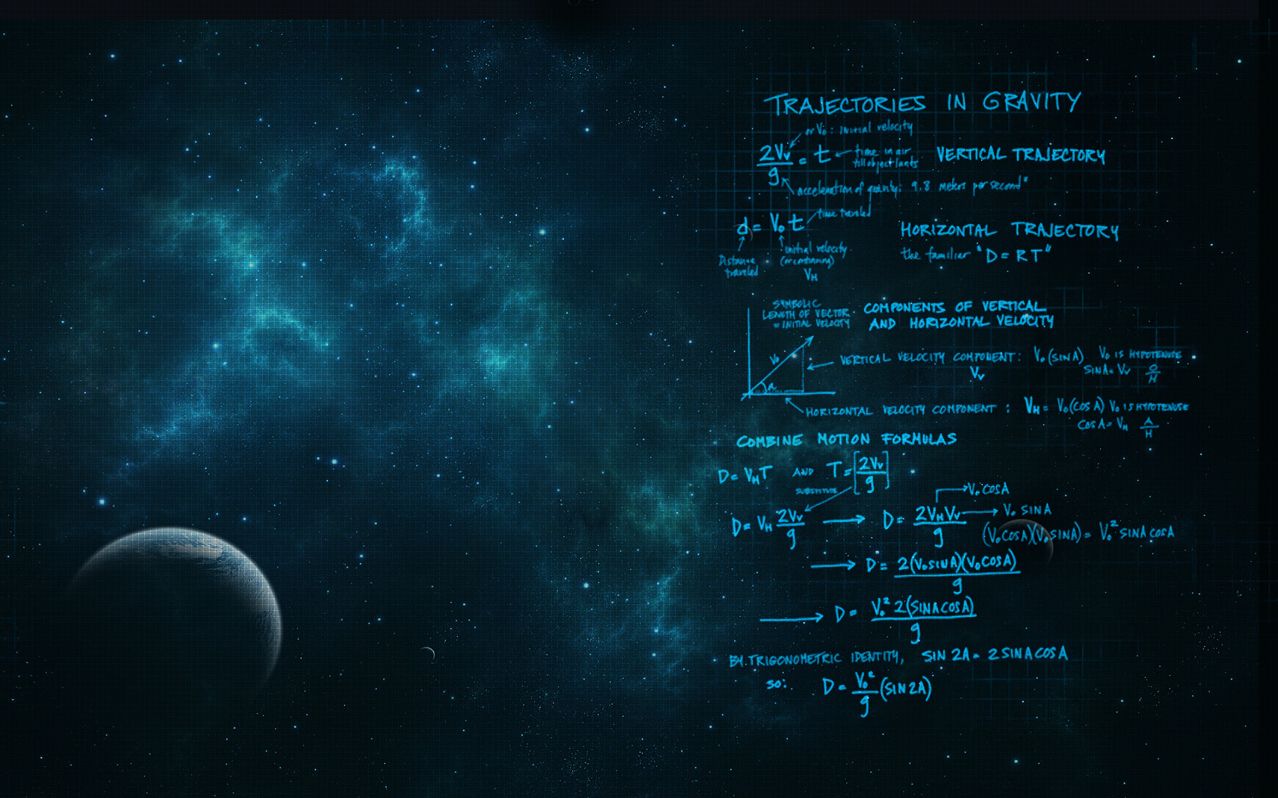 TRAJECTORIES IN GRAVITY
or V₀: initial velocity
2Vv/g = t time in air till object lands VERTICAL TRAJECTORY
acceleration of gravity: 9.8 meters per second²
d = V₀ t time traveled HORIZONTAL TRAJECTORY
Distance traveled initial velocity VH the familiar "D = RT"
SYMBOLIC LENGTH OF VECTOR = INITIAL VELOCITY
COMPONENTS OF VERTICAL
AND HORIZONTAL VELOCITY
V₀ A
VERTICAL VELOCITY COMPONENT: V₀(SINA) V₀ IS HYPOTENUSE
Vv SINA = Vv O/H
HORIZONTAL VELOCITY COMPONENT: VH = V₀(COS A) V₀ IS HYPOTENUSE
COS A = VH A/H
COMBINE MOTION FORMULAS
D = VHT AND T = [2Vv/g]
SUBSTITUTE
D = VH 2Vv/g → D = 2VHVv/g → V₀ COSA
→ V₀ SINA
(V₀COSA)(V₀SINA) = V₀² SINA COSA
→ D = 2(V₀SINA)(V₀COSA)/g
→ D = V₀² 2(SINACOSA)/g
BY TRIGONOMETRIC IDENTITY, SIN 2A = 2 SINA COSA
SO: D = V₀²/g (SIN2A)